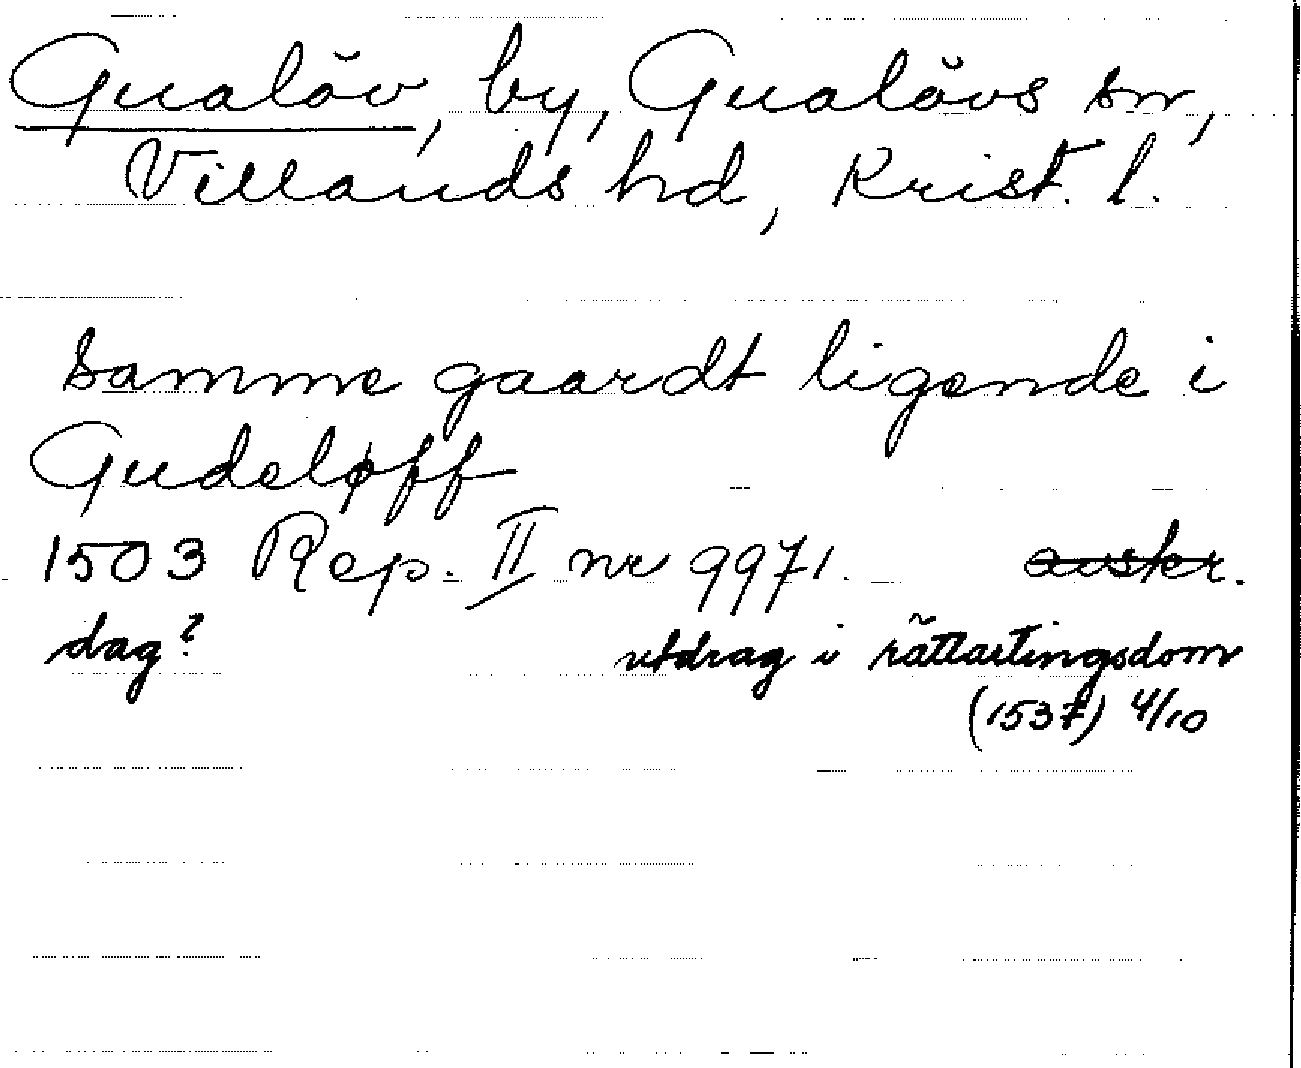 Gualöv, by, Gualövs sn,
Villands hd, Krist. l.
Samme gaardt ligende i
Gudeløff
1503 Rep. II nr 9971. avskr.
dag? utdrag i rättartingsdom
(1537) 4/10